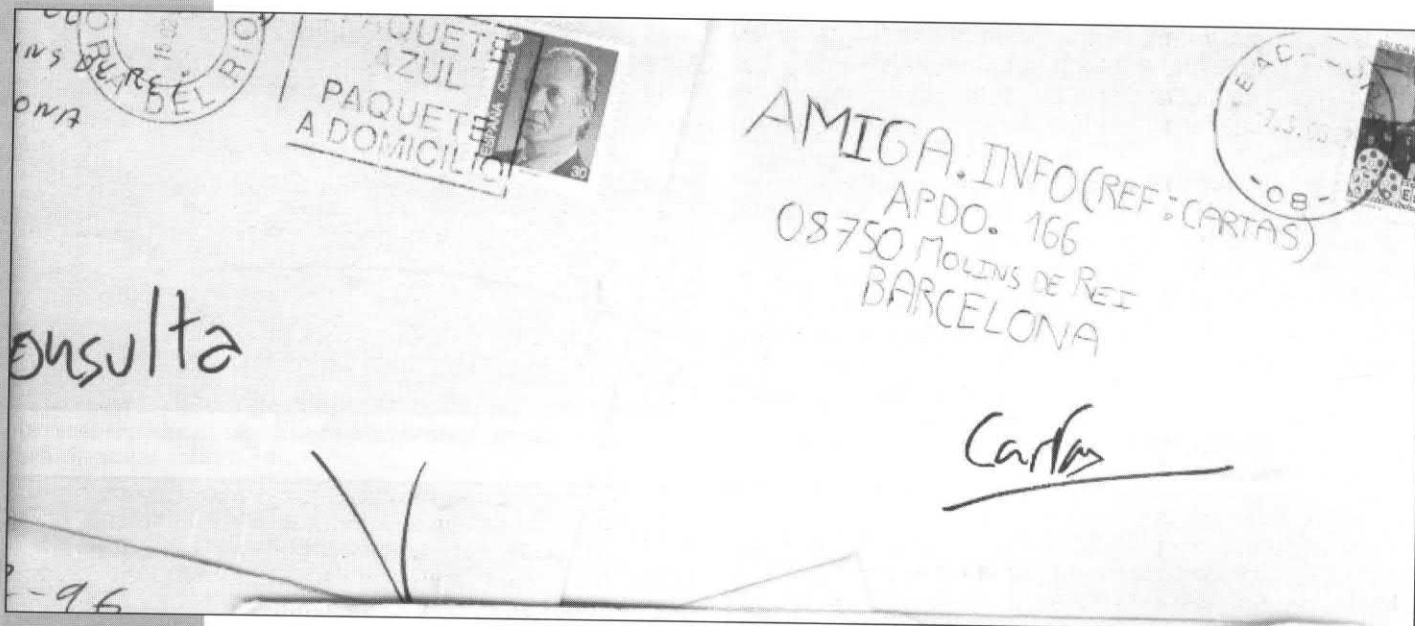 INS DE REI
ONA
DEL RIO
PAQUETE
AZUL
PAQUETE
A DOMICILIO
ESPAÑA CORREOS
30
AMIGA.INFO (REF: CARTAS)
APDO. 166
08750 MOLINS DE REI
BARCELONA
-08-
onsulta
Cartas
-96